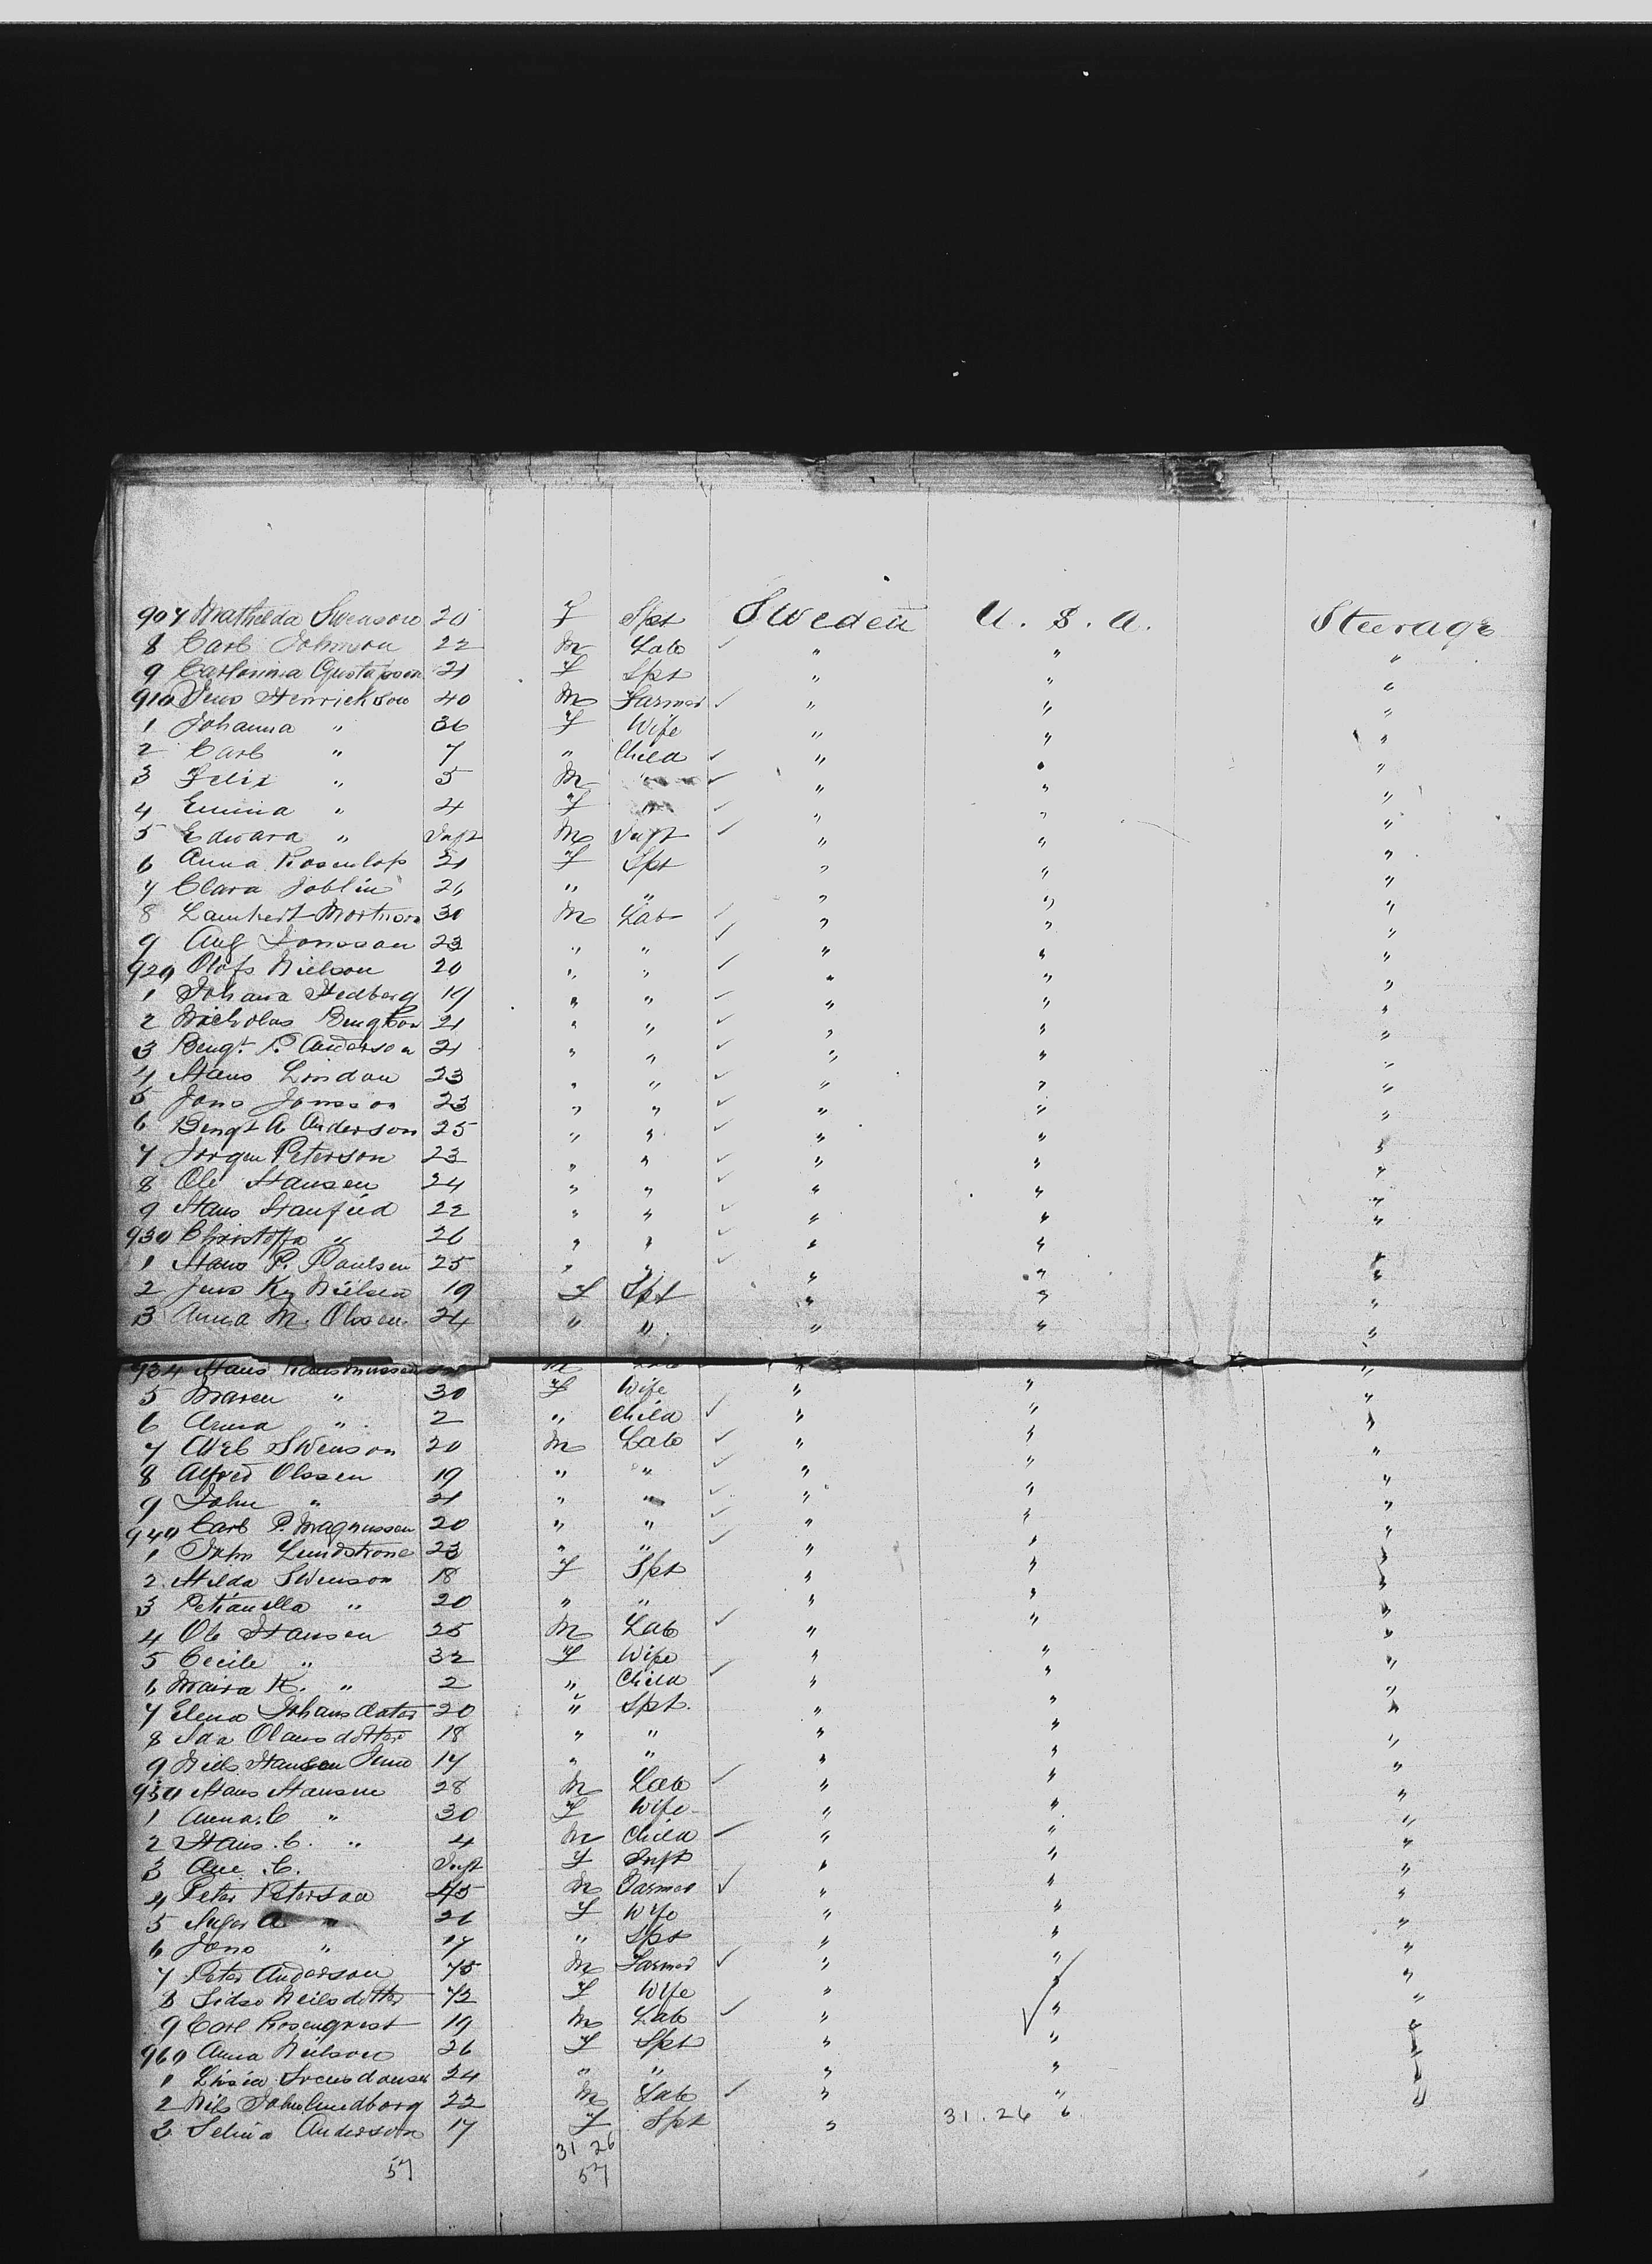 907 Mathilda Swenson 20 F Spt Sweden U. S. A. Steerage
8 Carl Johnson 22 M Lab " " "
9 Carlonina Gustafson 21 F Spt " " "
910 Jens Henrickson 40 M Farmer " " "
1 Johanna " 36 F Wife " " "
2 Carl " 7 " Child " " "
3 Felix " 5 M " " " "
4 Emma " 4 F " " " "
5 Edward " Inft M Inft " " "
6 Anna 21 F Spt " " "
7 Clara Joblin 26 " " " " "
8 Lambert Mortson 30 M Lab " " "
9 Aug Jonsson 23 " " " " "
920 Olofs Nielson 20 " " " " "
1 Johana Hedberg 19 " " " " "
2 Nicholas Bengtson 21 " " " " "
3 Bengt P. Anderson 21 " " " " "
4 Hans Lindau 23 " " " " "
5 Jons Jonsson 23 " " " " "
6 Bengt A Anderson 25 " " " " "
7 Jorgen Peterson 23 " " " " "
8 Ole Hansen 24 " " " " "
9 Hans 22 " " " " "
930 Christoffa " 26 " " " " "
1 Hans P. Paulsen 25 " " " " "
2 Jens Nielsen 19 F Spt " " "
3 Anna M. Olssen 24 " " " " "
934 Hans Rasmussen M Lab " " "
5 Maren " 30 F Wife " " "
6 Anna " 2 " Child " " "
7 Axel Swenson 20 M Lab " " "
8 Alfred Olssen 19 " " " " "
9 John " 21 " " " " "
940 Carl P. Magnussen 20 " " " " "
1 John Lundstrone 23 " " " " "
2 Hilda Swenson 18 F Spt " " "
3 Petranella " 20 " " " " "
4 Ole Hansen 25 M Lab " " "
5 Cecile " 32 F Wife " " "
6 Maira K. " 2 " Child " " "
7 Elena Johansdatter 20 " Spt. " " "
8 Ida Olausdotter 18 " " " " "
9 Niels Hansen 17 " " " " "
950 Hans Hansen 28 M Lab " " "
1 Anna. C " 30 F Wife " " "
2 Hans. C. " 4 M Child " " "
3 Ane. C. Inft F Inft " " "
4 Peter Peterson 45 M Farmer " " "
5 Inger A " 26 F Wife " " "
6 Jens " 17 " Spt " " "
7 Peter Anderson 75 M Farmer " " "
8 Sidse Neilsdotter 72 F Wife " " "
9 Carl Rosenqvist 19 M Lab " " "
960 Anna Nielson 26 F Spt " " "
1 24 " " " " "
2 Nils John Lundborg 22 M Lab " " "
3 Selina Anderson 17 F Spt " 31.26 "
31 26
57 57